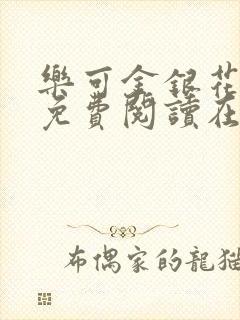 樂可金銀花
免費閱讀在
布偶家的龍貓